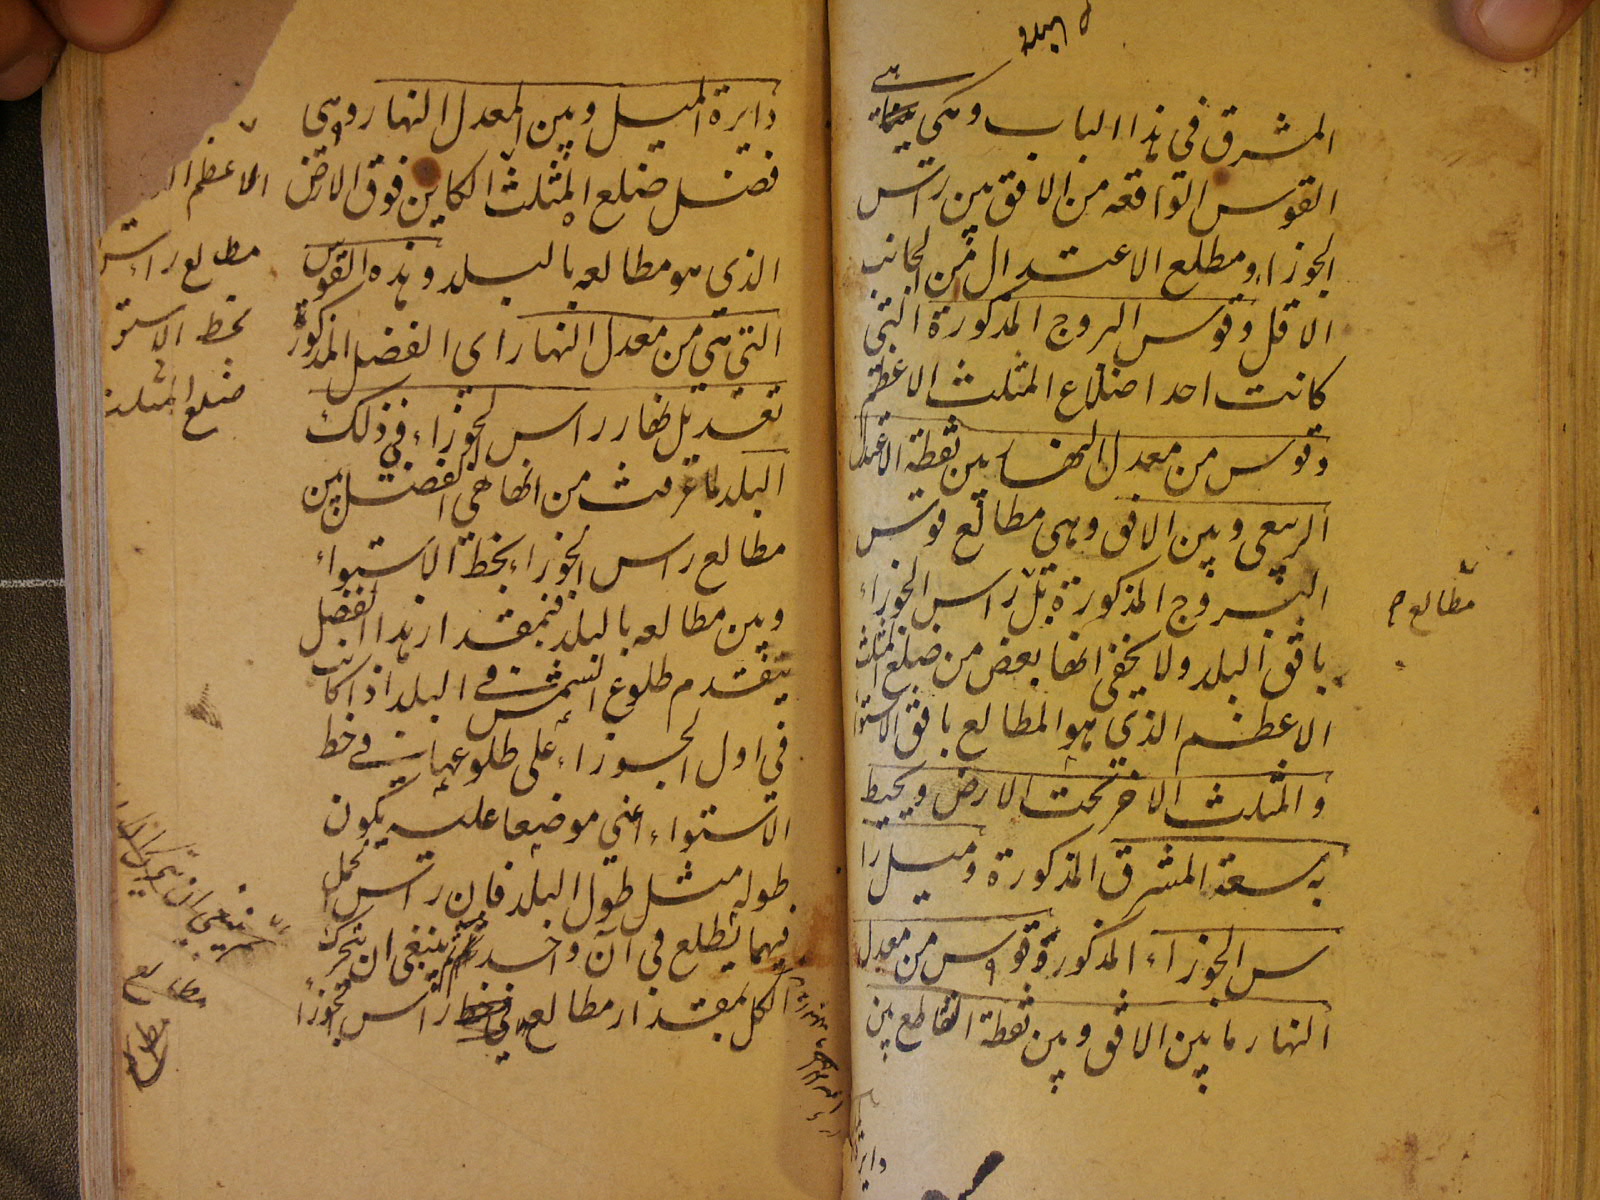 المشرق في هذا الباب وهي
القوس الواقعة من الافق بين راس
الجوزاء ومطلع الاعتدال من الجانب
الاقل وقوس البروج المذكورة التي
كانت احد اضلاع المثلث الاعظم
وقوس من معدل النهار بين نقطة الاعتدال
الربيعي وبين الافق وهي مطالع قوس
البروج المذكورة بل راس الجوزاء
بافق البلد ولا يخفى انها بعض من ضلع المثلث
الاعظم الذي هو المطالع بافق الاستوا
والمثلث الاخر تحت الارض ويحيط
به سعة المشرق المذكورة وميل را
س الجوزاء المذكور وقوس من معدل
النهار ما بين الافق وبين نقطة التقاطع بين
مطالع
دايرة
دايرة الميل وبين المعدل النهار وهي
فضل ضلع المثلث الكاين فوق الارض
الذي هو مطالعه بالبلد وهذه القوس
التي هي من معدل النهار اى الفضل المذكور
تعديل نهار راس الجوزاء في ذلك
البلد لما عرفت من انها هي الفضل بين
مطالع راس الجوزاء بخط الاستواء
وبين مطالعه بالبلد فبمقدار هذا الفضل
يتقدم طلوع الشمس في البلد اذا كانت
في اول الجوزاء على طلوعها في خط
الاستواء اعني موضعا عليه يكون
طوله مثل طول البلد فان راس الحمل
فيهما يطلع في آن واحد ثم ينبغي ان يتحرك
الكل بمقدار مطالع راس الجوزا
الاعظم
مطالع راس
بخط الاستو
ضلع المثلث
مطالع